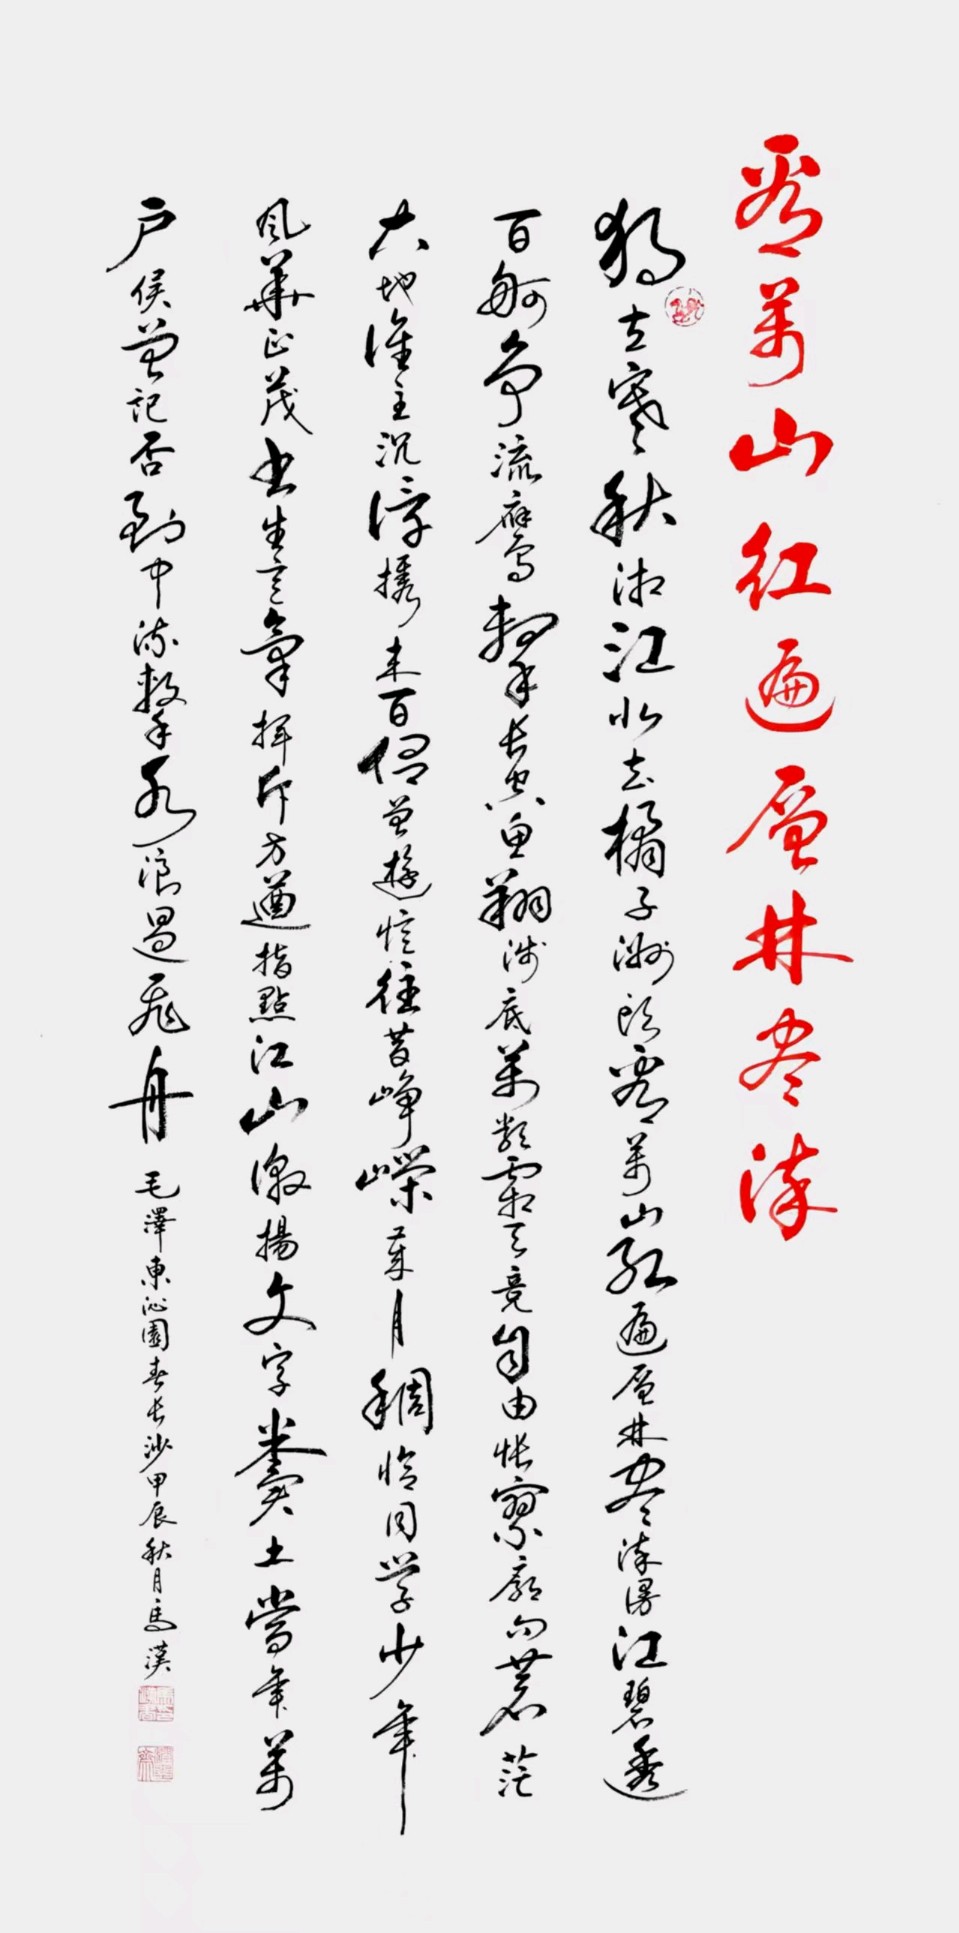 看萬山红遍层林尽染
独立寒秋湘江北去橘子洲头看萬山红遍层林尽染漫江碧透
百舸争流鹰擊长空鱼翔浅底萬类霜天竟自由怅寥廓问苍茫
大地谁主沉浮携来百侣曾遊忆往昔峥嵘岁月稠恰同学少年
风華正茂书生意氣挥斥方遒指點江山激揚文字粪土當年萬
户侯曾记否到中流擊水浪遏飞舟 毛澤東沁園春长沙甲辰秋月馬漢